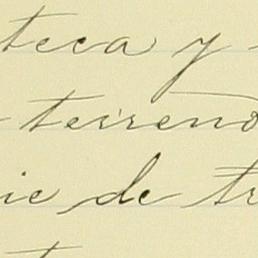 teca y
terreno
ie de tr